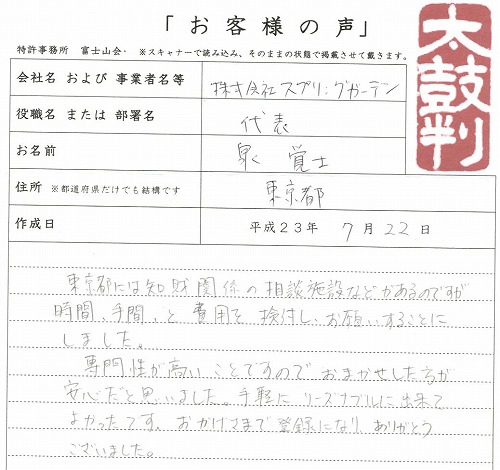 「お客様の声」
特許事務所 富士山会・ ※スキャナーで読み込み、そのままの状態で掲載させて戴きます。
太鼓判
会社名 および 事業者名等 株式会社スプリングガーデン
役職名 または 部署名 代表
お名前 泉 覚士
住所 ※都道府県だけでも結構です 東京都
作成日 平成23年 7月22日
東京都には知財関係の相談施設などがあるのですが
時間、手間、と費用を検討し、お願いすることに
しました。
専門性が高いことですので おまかせした方が
安心だと思いました。手軽に リーズナブルに出来て
よかったです。おかげさまで登録になり ありがとう
ございました。